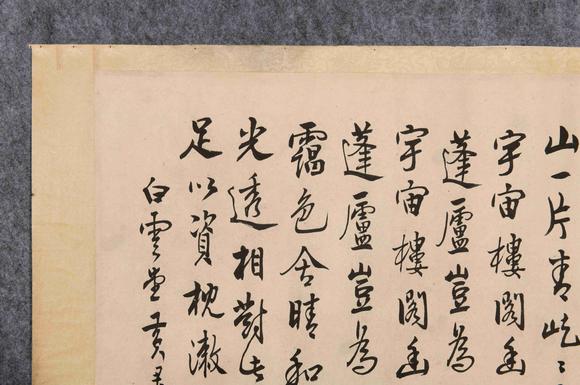 山一片青屹〻
宇宙樓閣
蓬廬豈為
宇宙樓閣
蓬廬豈為
靄色含晴和
光透相對
足以資枕漱
白雲堂黃